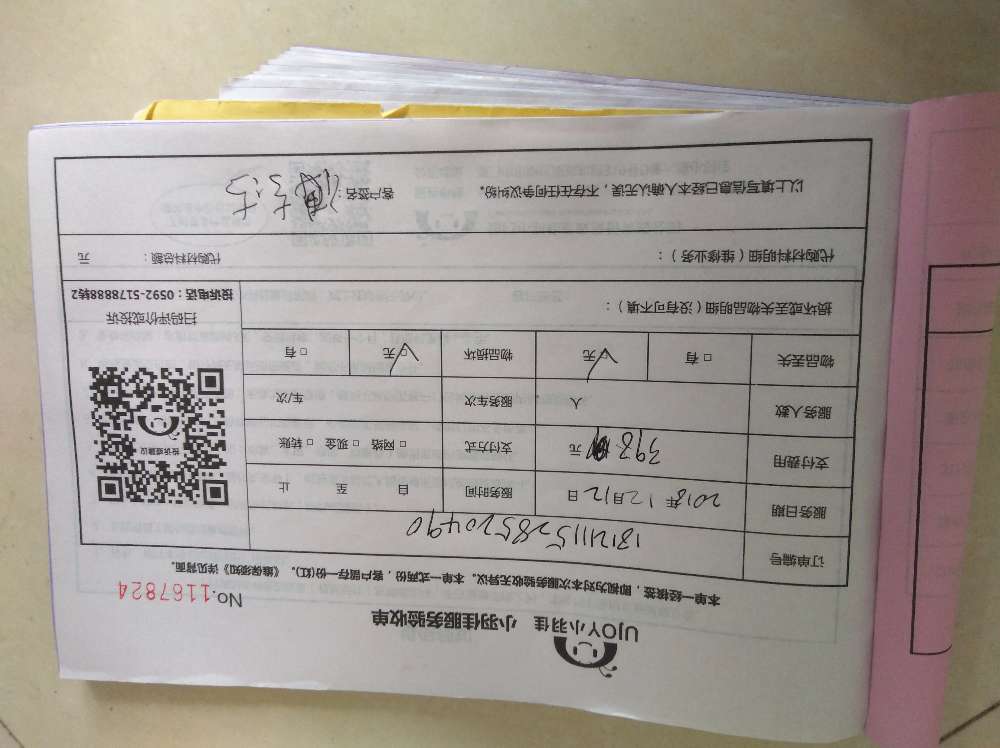 UJOY小羽佳 小羽佳服务验收单
No.1167824
本单一经核签，即视为对本次服务验收无异议。本单一式两份，客户留存一份(红)。《维保须知》详见背面。
订单编号 181211152852049
服务日期 2018年12月12日 服务时间 自 至 止
支付费用 398 元 支付方式 □网络 □现金 □转账
服务人数 人 服务车次 车/次
物品丢失 □有 □无 物品损坏 □无 □有
投诉或建议
扫码评价或投诉
投诉电话：0592-5178888转2
损坏或丢失物品明细（没有可不填）：
代购材料明细（维修业务）： 代购材料总额： 元
以上填写信息已经本人确认无误，不存在任何争议纠纷。 客户签名：